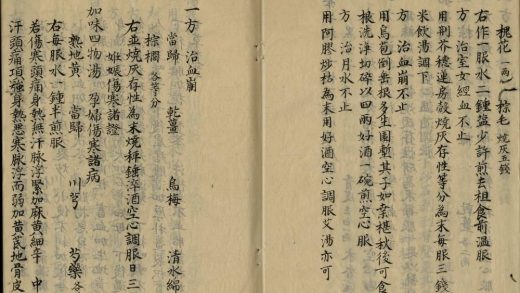 槐花一兩 棕毛燒灰五錢
右作一服水二鍾鹽少許煎去柤食前溫服
方 治室女經血不止
用荆芥穗蓮房殼燒灰存性等分為末每服三錢
米飲湯調下
方 治血崩不止
用烏萢倒垂根多生園塹其子如桑椹秋後可食
根洗淨切碎以四兩好酒一碗煎空心服
方 治月水不止
用阿膠炒枯為末用好酒空心調服艾湯亦可
一方 治血崩
當歸 乾薑 烏梅 清水綿
棕櫚各等分
右並燒灰存性為末燒秤錘淬酒空心調服日三
姙娠傷寒諸證
加味四物湯 孕婦傷寒諸病
熟地黃 當歸 川芎 芍藥各
右每服水一鍾半煎服
若傷寒頭痛身熱無汗脉浮緊加麻黃細辛 中
汗頭痛項強身熱惡寒脉浮而弱加黃芪地骨皮